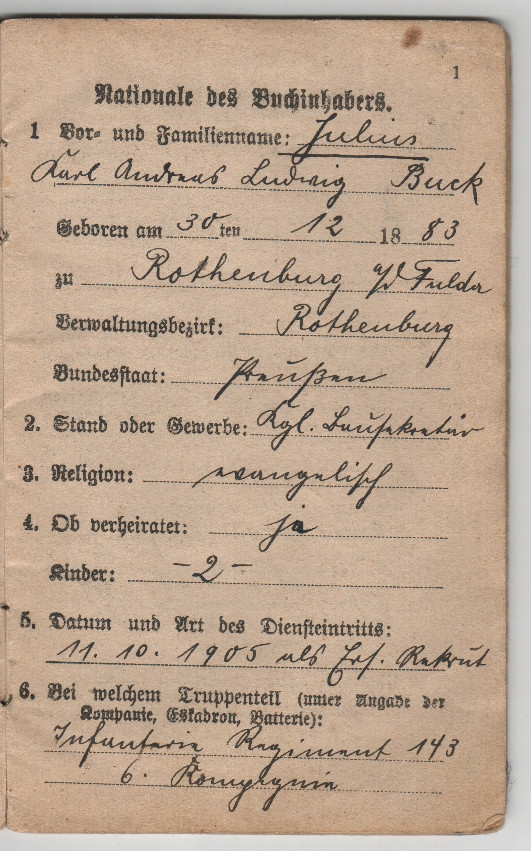 1
Nationale des Buchinhabers.
1 Vor- und Familienname: Julius
Karl Andreas Ludwig Buck
Geboren am 30ten 12 1883
zu Rothenburg a/d Fulda
Verwaltungsbezirk: Rothenburg
Bundesstaat: Preußen
2. Stand oder Gewerbe: Kgl. Bausekretär
3. Religion: evangelisch
4. Ob verheiratet: ja
Kinder: - 2 -
5. Datum und Art des Diensteintritts:
11. 10. 1905 als Ers. Rekrut
6. Bei welchem Truppenteil (unter Angabe der
Kompanie, Eskadron, Batterie):
Infanterie Regiment 143
6. Kompagnie